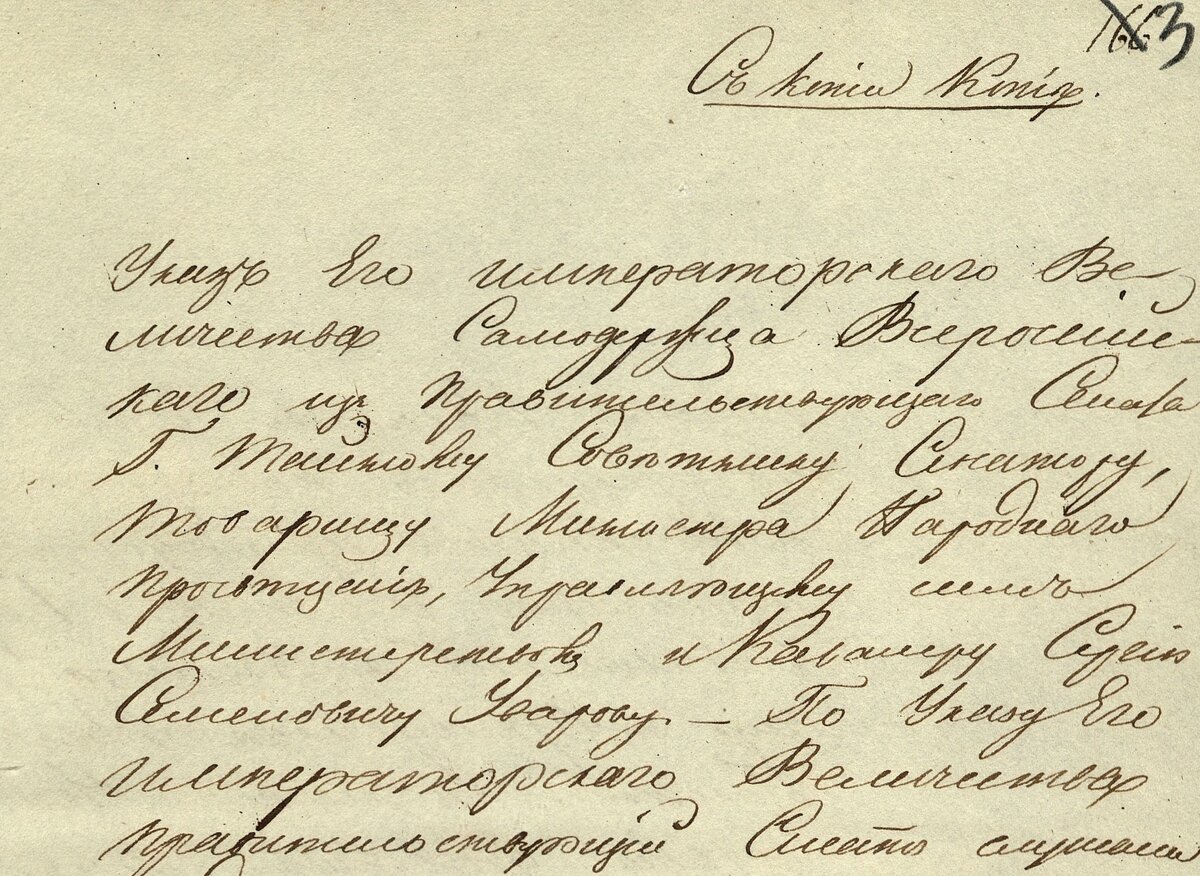 Съ копіи Копія.
Указъ Его Императорскаго Ве-
личества Самодержца Всеросій-
скаго изъ Правительствующаго Сената
Г. Тайному Совѣтнику, Сенатору,
Товарищу Министра Народнаго
Просвѣщенія, Управляющему симъ
Министерствомъ и Кавалеру Сергію
Семеновичу Уварову. — По Указу Его
Императорскаго Величества
Правительствующій Сенатъ слушали